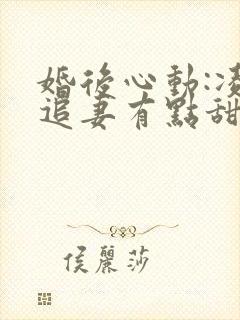 婚後心動:凌
追妻有點甜
侯麗莎